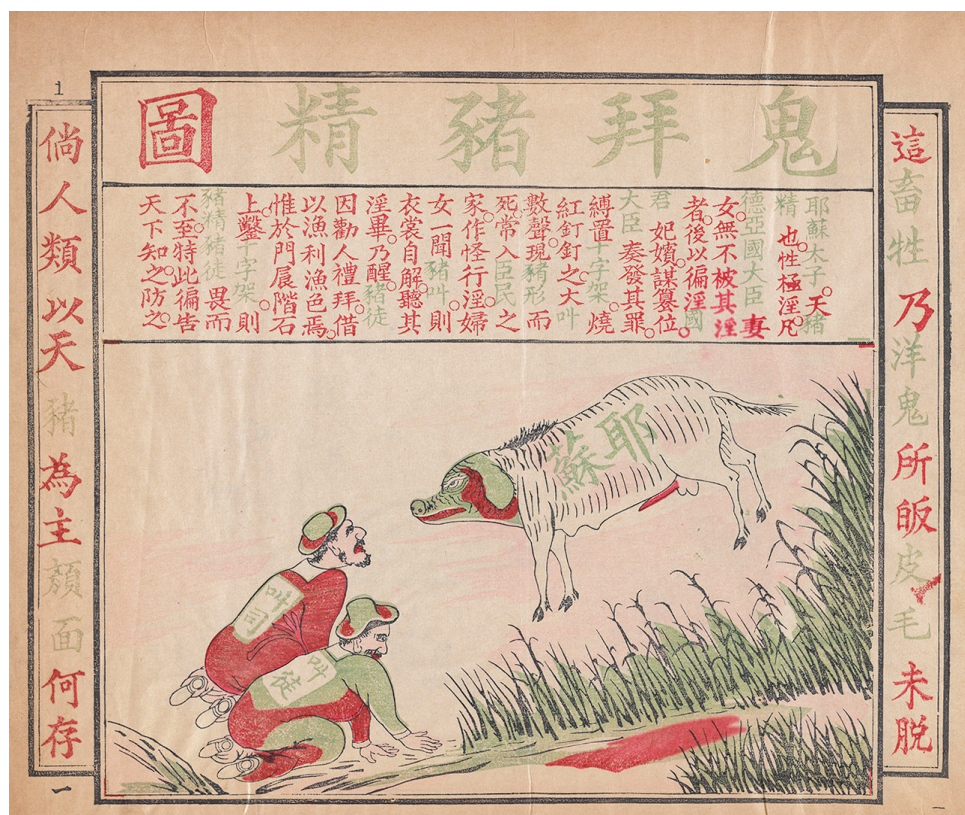 鬼拜豬精圖
這畜牲乃洋鬼所皈皮毛未脫
耶蘇太子。天豬
精也。性極淫。凡
德亞國大臣妻
女。無不被其淫
者。後以徧淫國
君妃嬪。謀篡位。
大臣奏發其罪。
縛置十字架。燒
紅釘釘之。大叫
數聲。現豬形而
死。常入臣民之
家。作怪行淫。婦
女一聞豬叫。則
衣裳自解。聽其
淫畢乃醒。豬徒
因勸人禮拜。借
以漁利漁色焉。
惟於門扆階石
上鑿十字架。則
豬精豬徒畏而
不至。特此徧告
天下知之防之。
耶蘇
叫司
叫徒
1
倘人類以天豬為主顏面何存
一